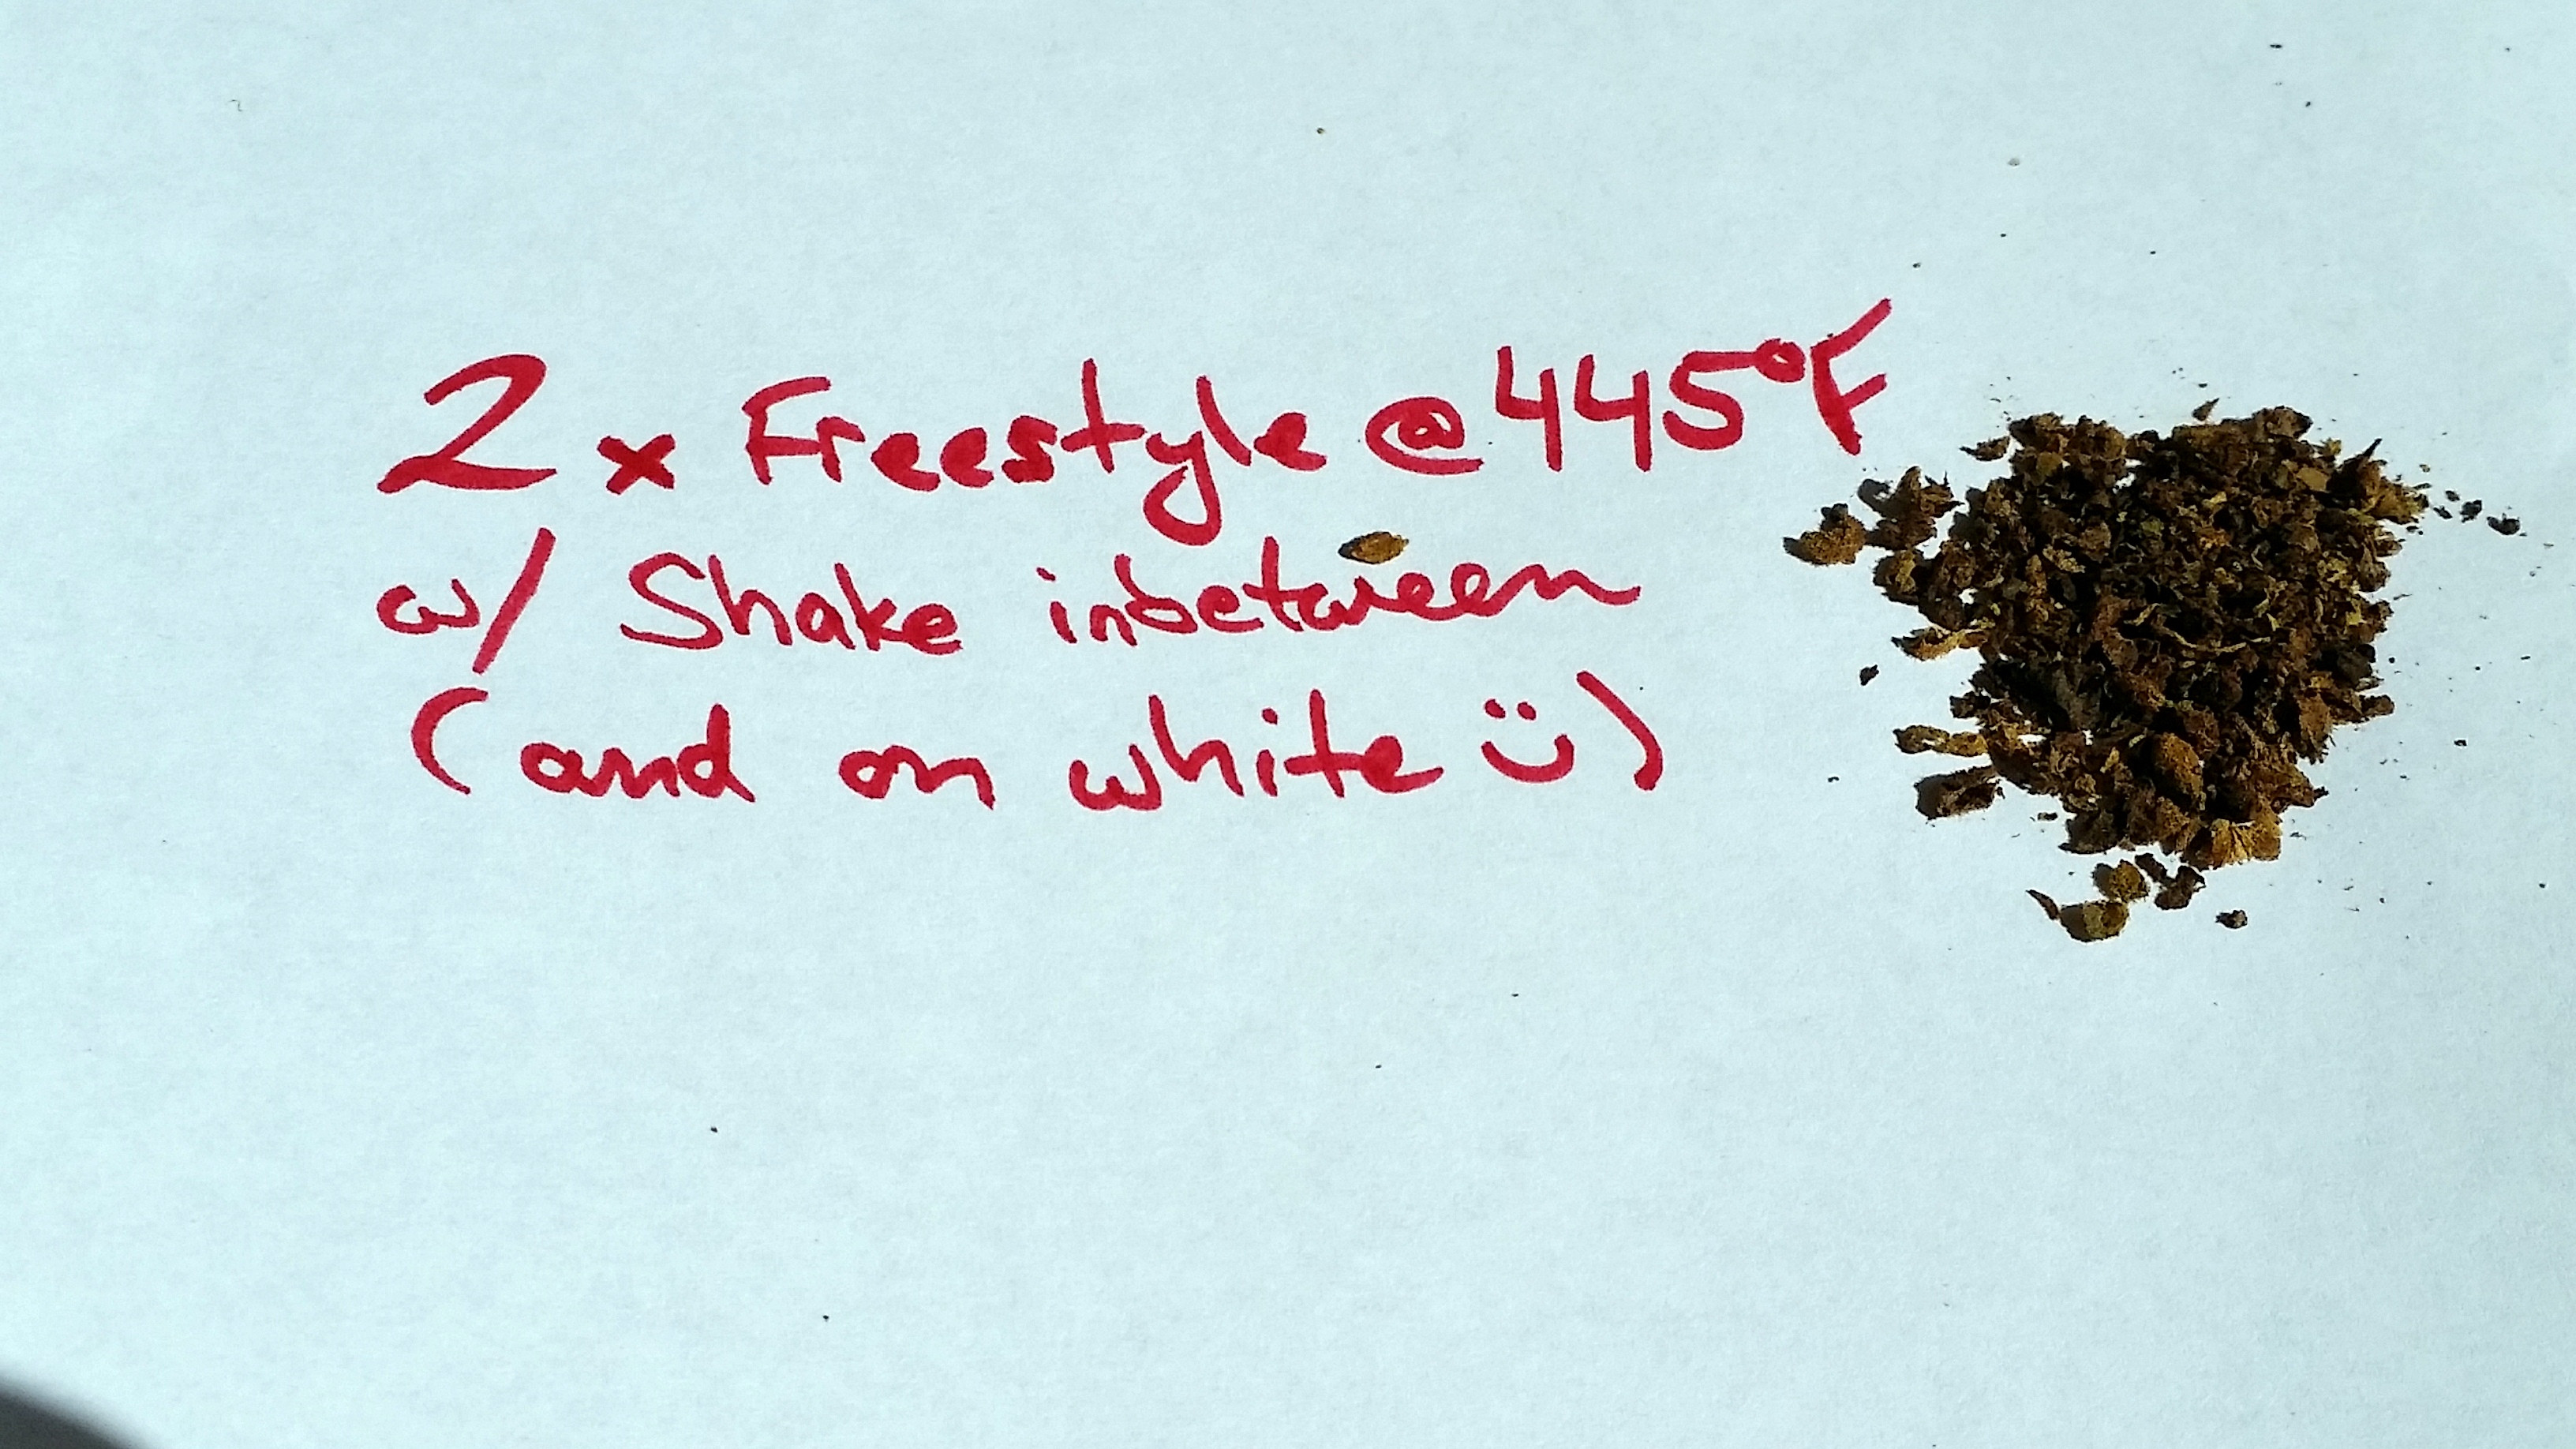 2 x Freestyle @ 445°F
w/ Shake inbetween
(and on white ü)